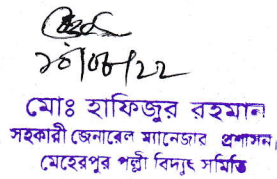 ১৪/০৮/২২
মোঃ হাফিজুর রহমান
সহকারী জেনারেল ম্যানেজার প্রশাসন,
মেহেরপুর পল্লী বিদ্যুৎ সমিতি